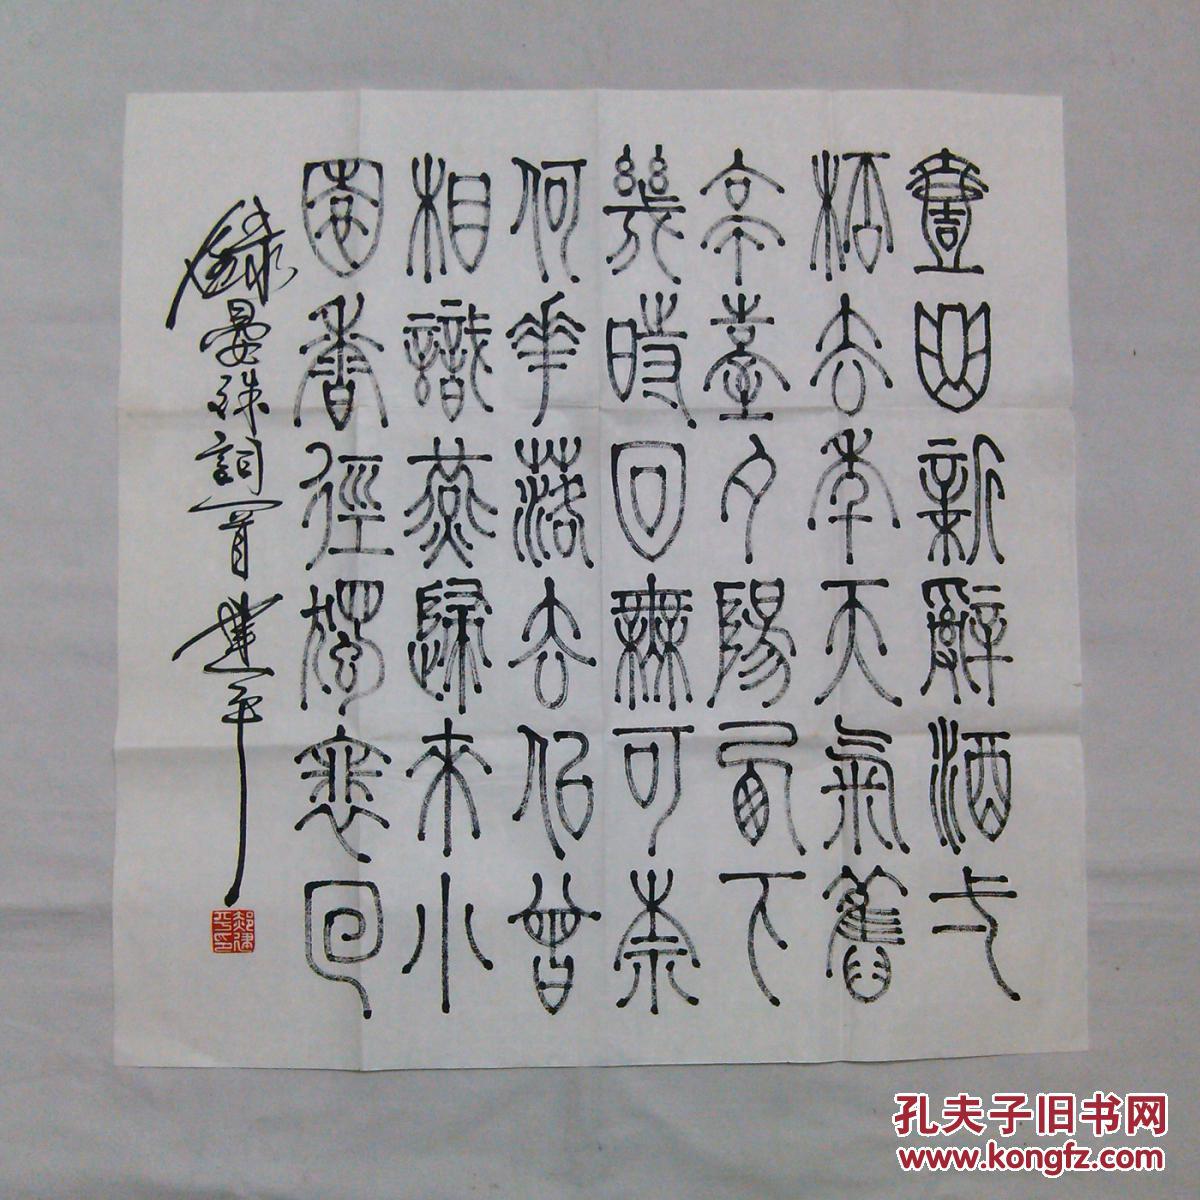 壹曲新辭酒弌
桮去年天氣舊
亭臺夕陽西下
幾時回無可奈
何華落去佀曾
相識燕歸來小
園香徑獨裵回
錄晏殊詞一首 建平
孔夫子旧书网
www.kongfz.com